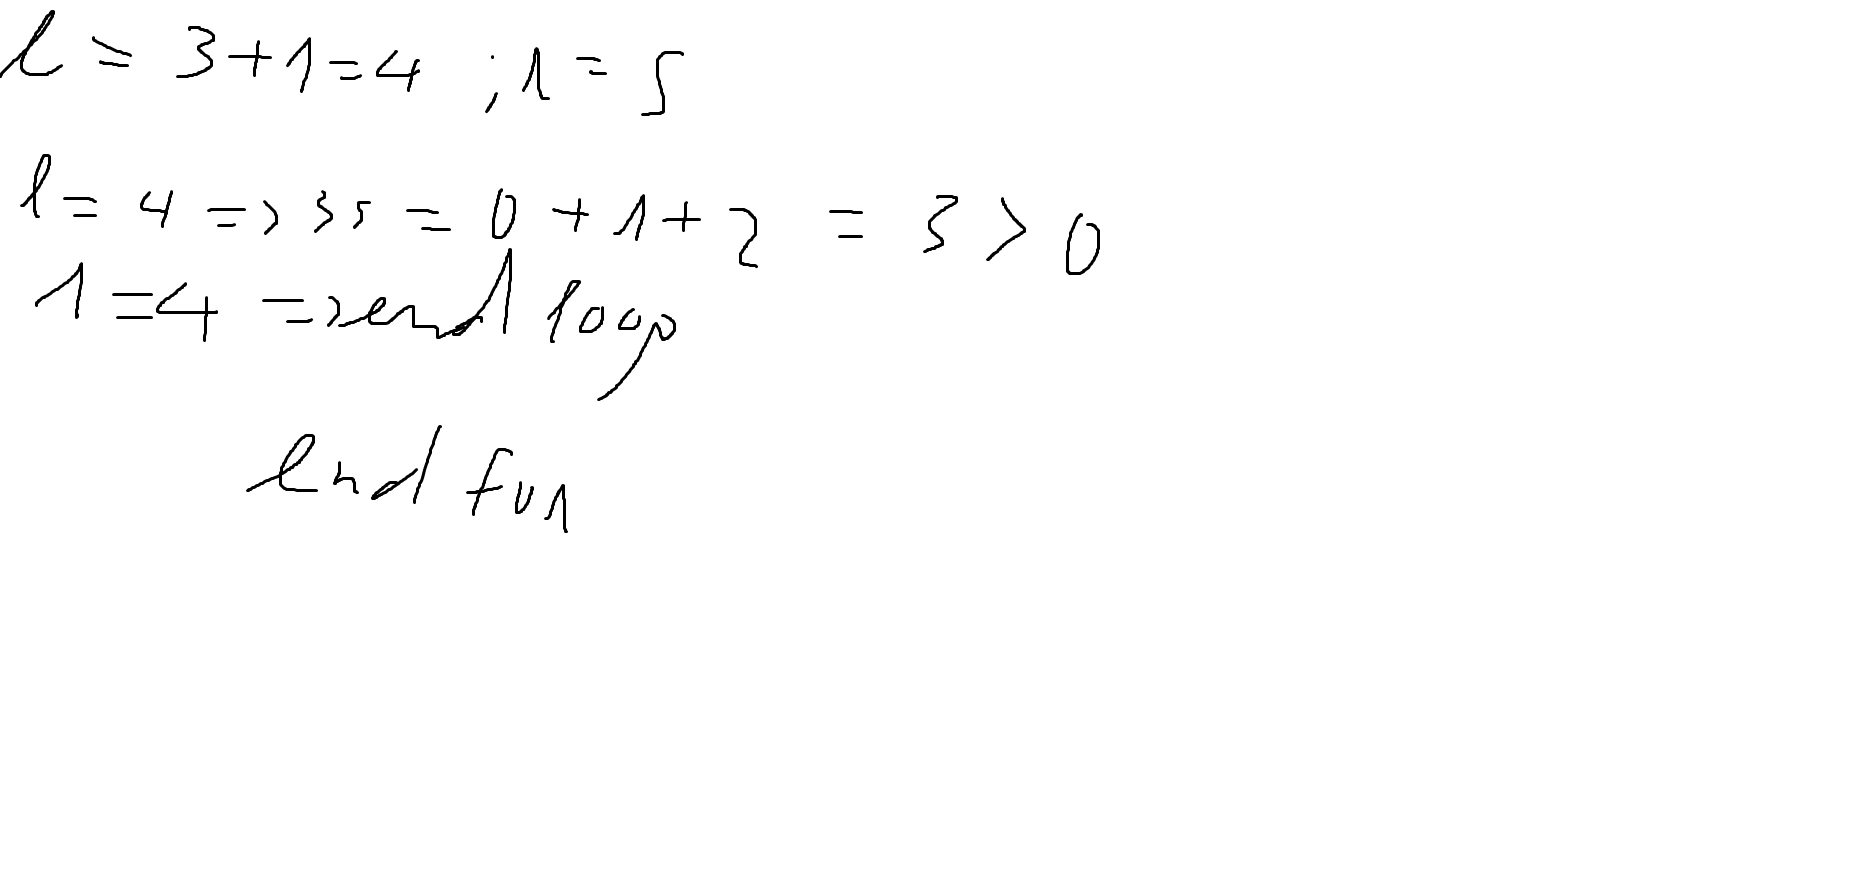 l = 3+1=4 ; 1 = 5
l = 4 => 35 = 0 + 1 + 2 = 3 > 0
1 = 4 => end loop
end fun